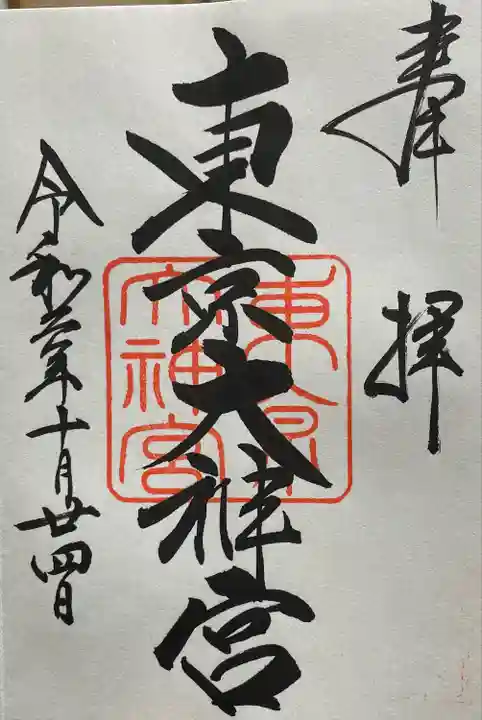 奉拝
東京大神宮
東京大神宮
令和六年十月廿四日